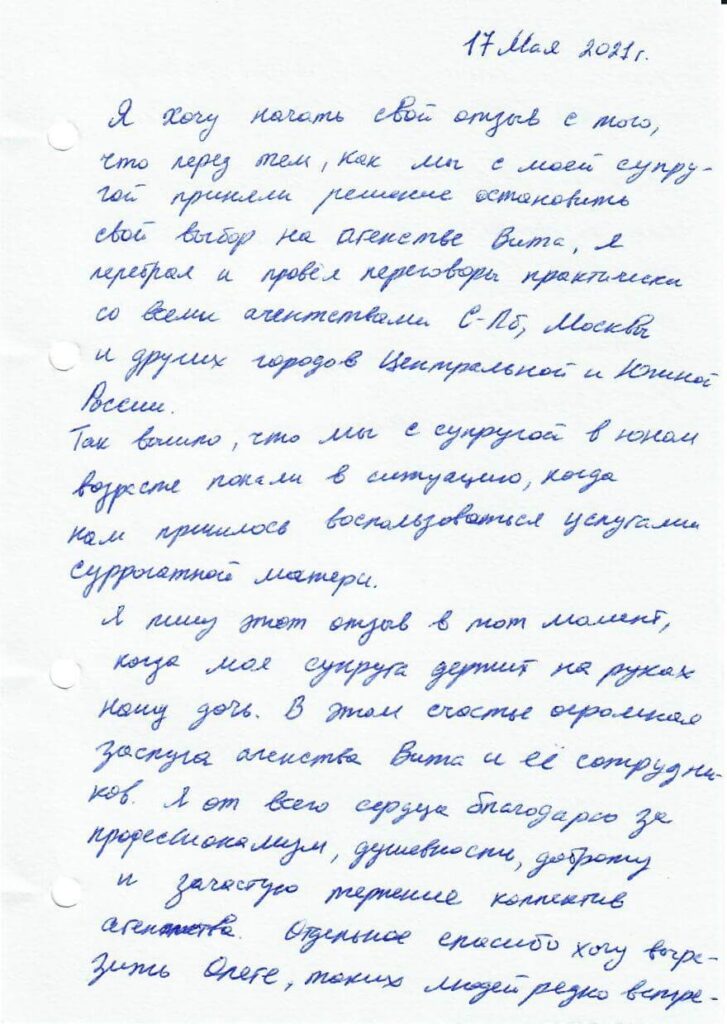 17 Мая 2021г.
Я хочу начать свой отзыв с того,
что перед тем, как мы с моей супру-
гой приняли решение остановить
свой выбор на агенстве Вита, я
перебрал и провёл переговоры практически
со всеми агентствами С-Пб, Москвы
и других городов Центральной и Южной
России.
Так вышло, что мы с супругой в юном
возрасте попали в ситуацию, когда
нам пришлось воспользоваться услугами
суррогатной матери.
Я пишу этот отзыв в тот момент,
когда моя супруга держит на руках
нашу дочь. В этом счастье огромная
заслуга агенства Вита и её сотрудни-
ков. Я от всего сердца благодарю за
профессионализм, душевность, доброту
и зачастую терпение коллектив
агентства. Отдельное спасибо хочу выра-
зить Олеге, таких людей редко встре-